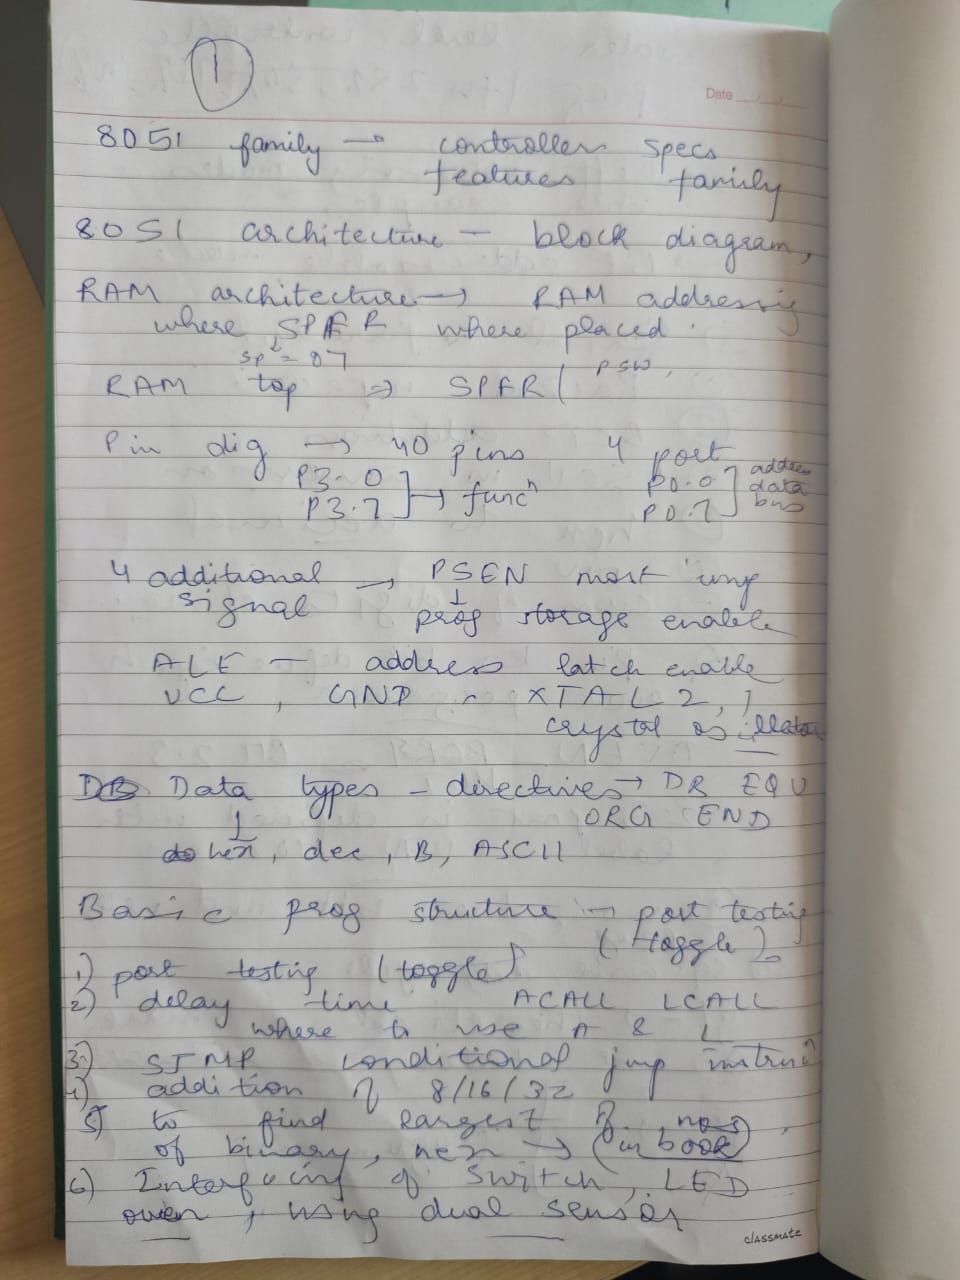 1
Date
8051 family → controllers specs
features family
8051 architecture - block diagram,
RAM architecture → RAM addressing
where SPFR where placed.
SP = 07
RAM top ⇒ SPFR ( PSW,
Pin dig → 40 pins 4 port
P3.0 P0.0 address
P3.7 → funcⁿ P0.7 data
bus
4 additional → PSEN most imp
signal ↓ prog storage enable
ALE - address latch enable
VCC, GND XTAL 2, 1
crystal osillator
DB Data types - directives → DB EQU
↓ ORG END
hex, dec, B, ASCII
Basic prog structure → port testing
(toggle)
1) port testing (toggle)
2) delay time ACALL LCALL
where to use A & L
3) SJMP conditional jmp instrucⁿ
4) addition of 8/16/32
5) to find largest of nos,
of binary, hex → (in book)
6) Interfacing of switch, LED
, using dual sensor
classmate